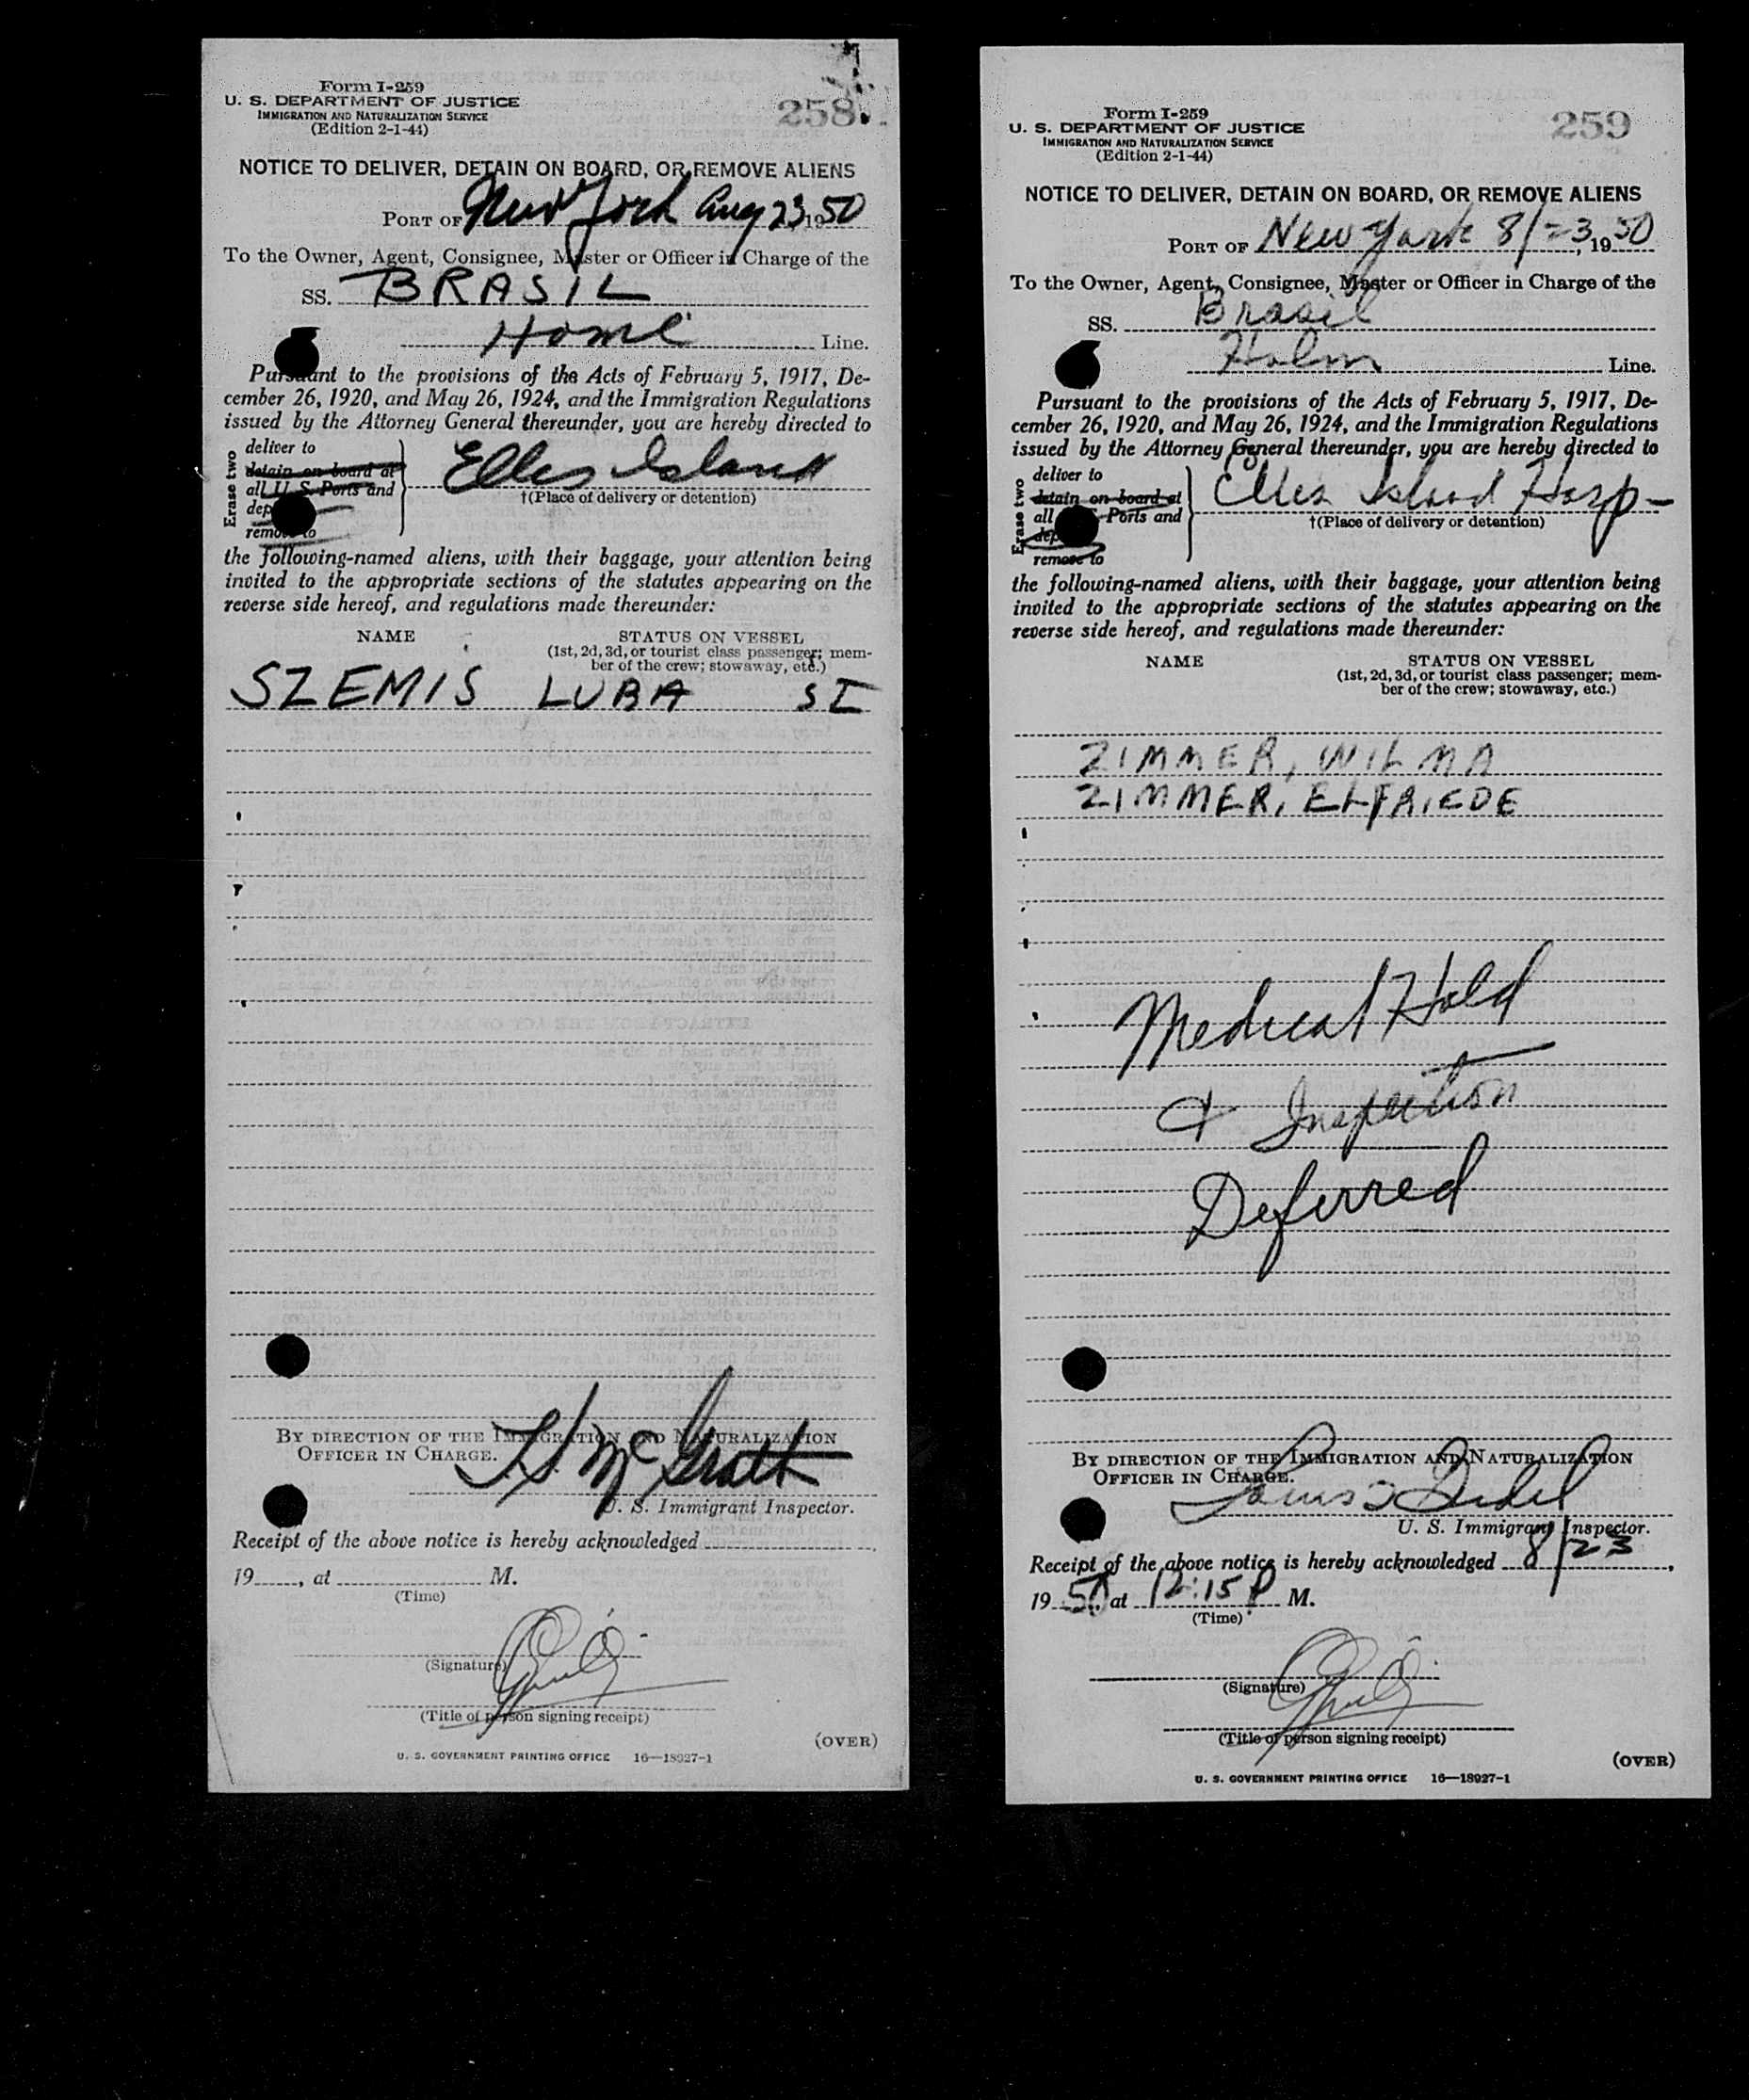 Form I-259
U. S. DEPARTMENT OF JUSTICE
IMMIGRATION AND NATURALIZATION SERVICE
(Edition 2-1-44)
258
NOTICE TO DELIVER, DETAIN ON BOARD, OR REMOVE ALIENS
PORT OF New York Aug 23, 1950
To the Owner, Agent, Consignee, Master or Officer in Charge of the
SS. BRASIL
Home Line.
Pursuant to the provisions of the Acts of February 5, 1917, De-
cember 26, 1920, and May 26, 1924, and the Immigration Regulations
issued by the Attorney General thereunder, you are hereby directed to
Erase two
deliver to
detain on board at
all U. S. Ports and
dep
remove to
Elles Island
†(Place of delivery or detention)
the following-named aliens, with their baggage, your attention being
invited to the appropriate sections of the statutes appearing on the
reverse side hereof, and regulations made thereunder:
NAME STATUS ON VESSEL
(1st, 2d, 3d, or tourist class passenger; mem-
ber of the crew; stowaway, etc.)
SZEMIS LUBA SI
BY DIRECTION OF THE IMMIGRATION AND NATURALIZATION
OFFICER IN CHARGE.
McGrath
U. S. Immigrant Inspector.
Receipt of the above notice is hereby acknowledged
19, at M.
(Time)
(Signature)
(Title of person signing receipt)
(OVER)
U. S. GOVERNMENT PRINTING OFFICE 16—18927-1
Form I-259
U. S. DEPARTMENT OF JUSTICE
IMMIGRATION AND NATURALIZATION SERVICE
(Edition 2-1-44)
259
NOTICE TO DELIVER, DETAIN ON BOARD, OR REMOVE ALIENS
PORT OF New York 8/23, 1950
To the Owner, Agent, Consignee, Master or Officer in Charge of the
SS. Brasil
Holm Line.
Pursuant to the provisions of the Acts of February 5, 1917, De-
cember 26, 1920, and May 26, 1924, and the Immigration Regulations
issued by the Attorney General thereunder, you are hereby directed to
Erase two
deliver to
detain on board at
all Ports and
dep
remove to
Elles Island Hosp-
†(Place of delivery or detention)
the following-named aliens, with their baggage, your attention being
invited to the appropriate sections of the statutes appearing on the
reverse side hereof, and regulations made thereunder:
NAME STATUS ON VESSEL
(1st, 2d, 3d, or tourist class passenger; mem-
ber of the crew; stowaway, etc.)
ZIMMER, WILMA
ZIMMER, ELFRIEDE
Medical Hold
& Inspection
Deferred
BY DIRECTION OF THE IMMIGRATION AND NATURALIZATION
OFFICER IN CHARGE.
Louis
U. S. Immigrant Inspector.
Receipt of the above notice is hereby acknowledged 8/23,
19 50, at 12:15 P M.
(Time)
(Signature)
(Title of person signing receipt)
(OVER)
U. S. GOVERNMENT PRINTING OFFICE 16—18927-1